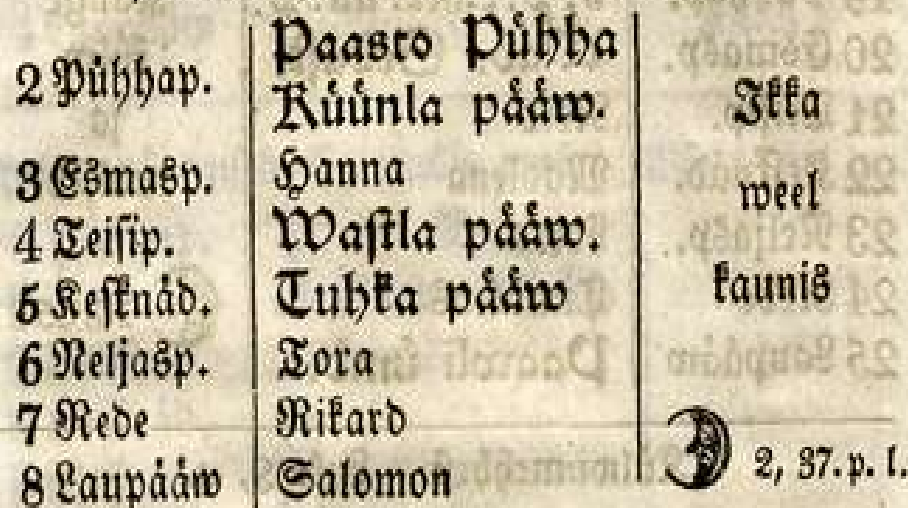 Paasto Pühha
2 Pühhap. Küünla pääw. Ikka
3 Esmasp. Hanna weel
4 Teisip. Wastla pääw.
5 Kesknäd. Tuhka pääw kaunis
6 Neljasp. Tora
7 Rede Rikard
8 Laupääw Salomon 2, 37. p. l.